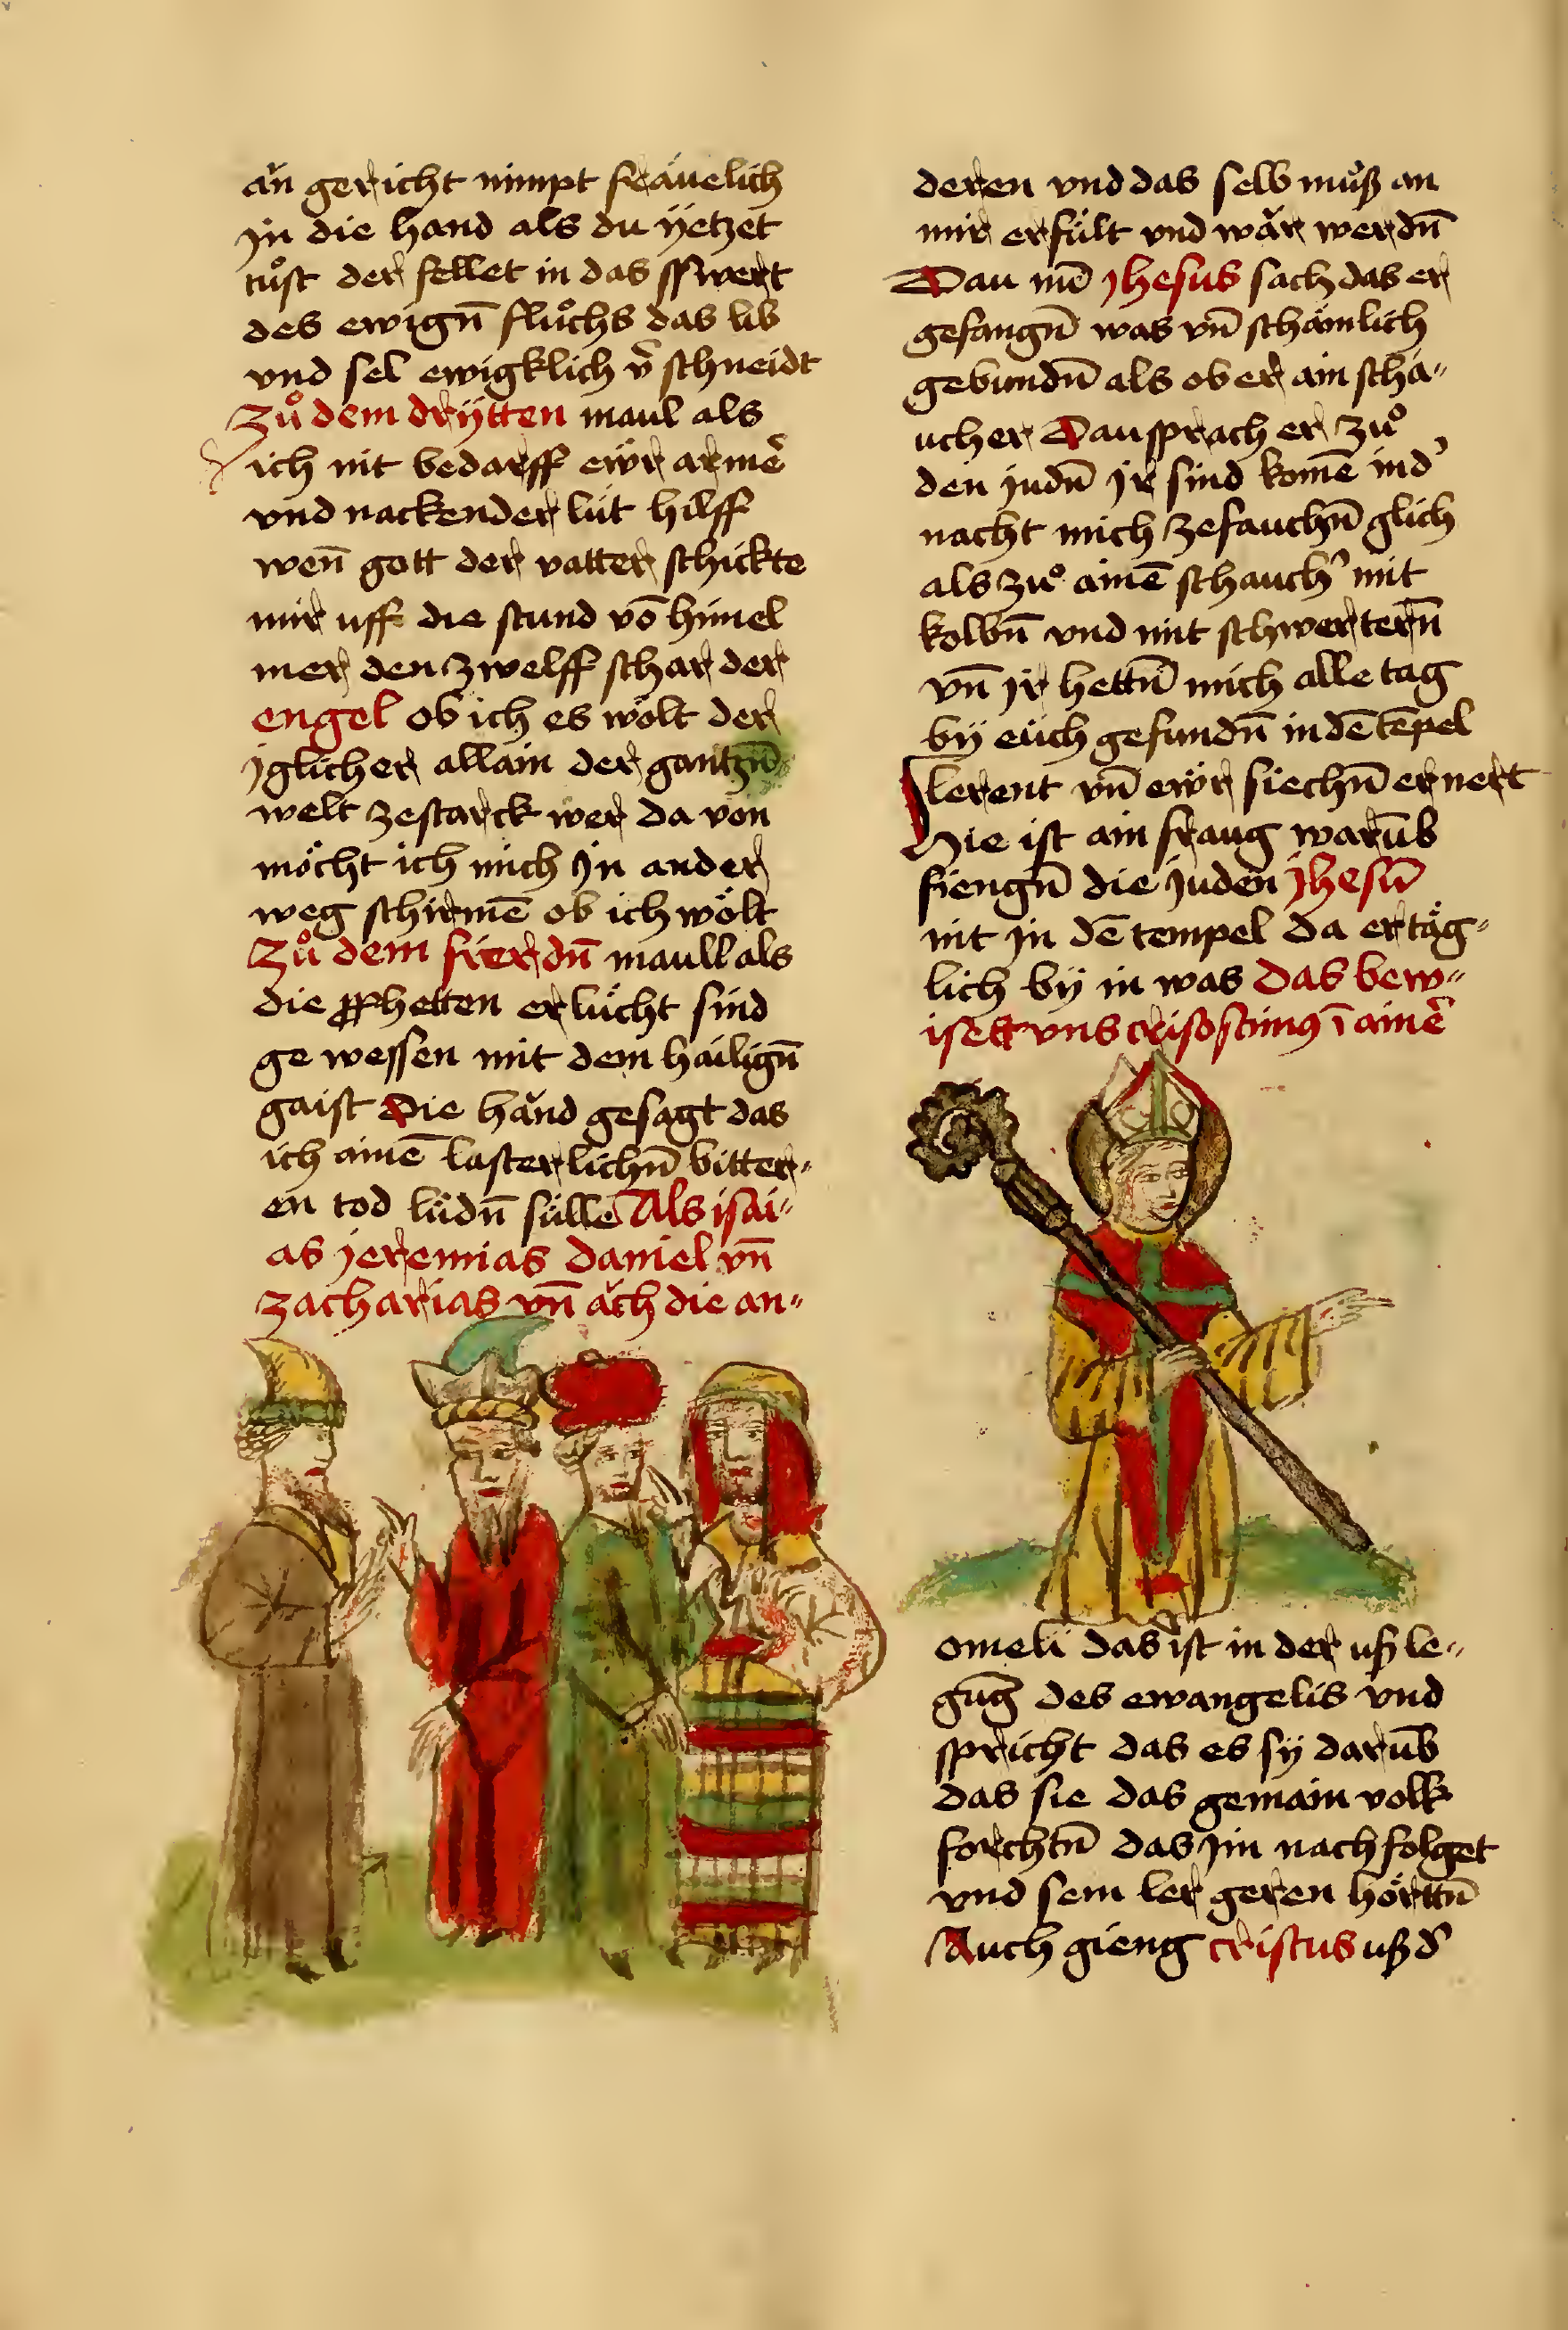 ǎn gericht nimpt fräuelich
jn die hand als du ÿetzet
tuͦst der fellet in das sswert
des ewign̄ fluͦchs das lib
vnd sel ewigklich v̄ schneidt
Zuͦ dem drÿtten maul als
ich nit bedarff ewr armē
vnd nackender lüt hilff
wen̄ gott der vatter schickte
mir uff die stund vō himel
mer den zwelff schar der
engel ob ich es wölt der
jglicher allain der gantzn̄
welt zestarck wer da von
möcht ich mich jn ander
weg schirmē ob ich wölt
Zuͦ dem frierdn̄ maull als
die ꝓphetten erlücht sind
ge wessen mit dem hailign̄
gaist Die händ gesagt das
ich ainē lasterlichn̄ bitter〃
en tod lüdn̄ sülle Als isai〃
as jeremias daniel vn̄
zacharias vn̄ ǎch die an〃
deren vnd das selb muͦß an
mir erfült vnd wǎr werdn̄
Dau nū jhesus sach das er
gefangn̄ was vn̄ schämlich
gebundn̄ als ob er ain scha〃
ucher Dau sprach er zuͦ
den judn̄ jr sind komē in d'
nacht mich zefauchn̄ glich
als zuͦ ainē schauch' mit
kolbn̄ vnd mit schwertern̄
vn̄ jr hettn̄ mich alle tag
bÿ eüch gefundn̄ in dē tēpel
lerent vn̄ ewr siechn̄ ernert
Hie ist ain fraug warūb
fiengn̄ die juden jhesū
nit jn dē tempel da er täg〃
lich bÿ in was Das bew〃
iset vns crisostimꝯ ī ainē
omeli das ist in der ußle〃
gūg des ewangelis vnd
spricht das es sÿ darūb
das sie das gemain volk
forchtn̄ das jm nach folget
vnd sein ler geren hörttn̄
Auch gieng cristus uß d'